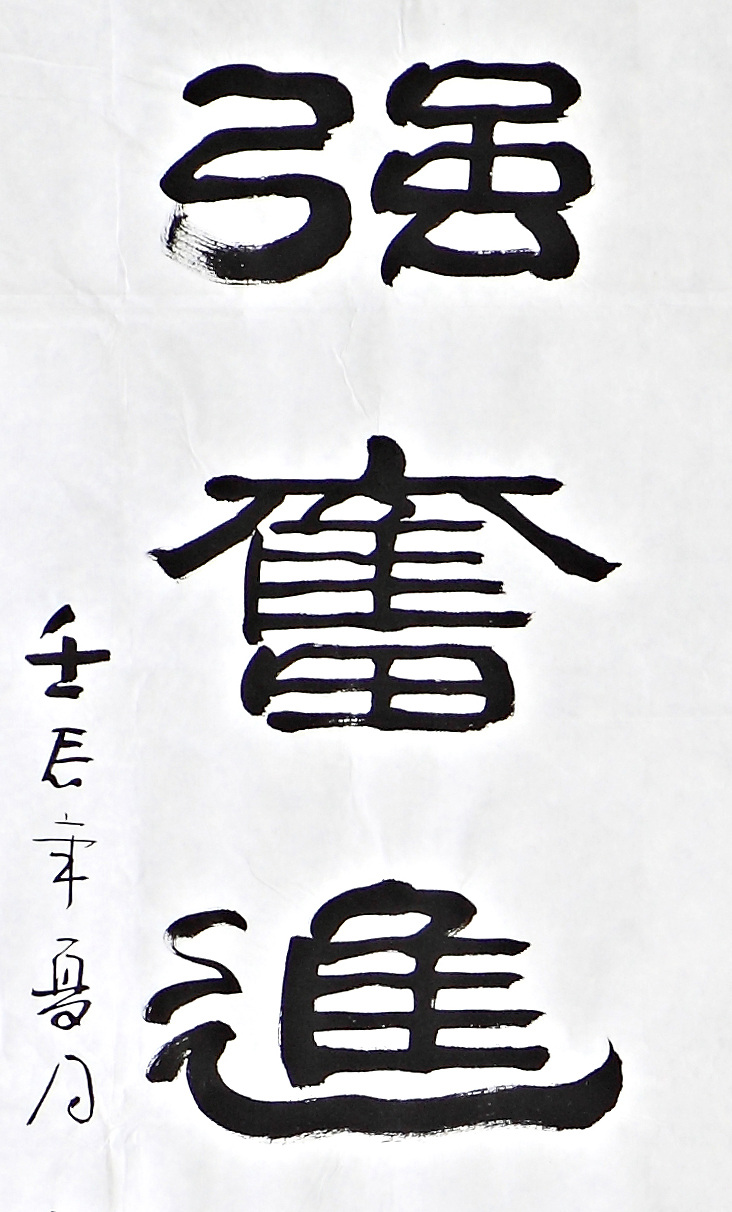 强奮進
壬辰年夏月